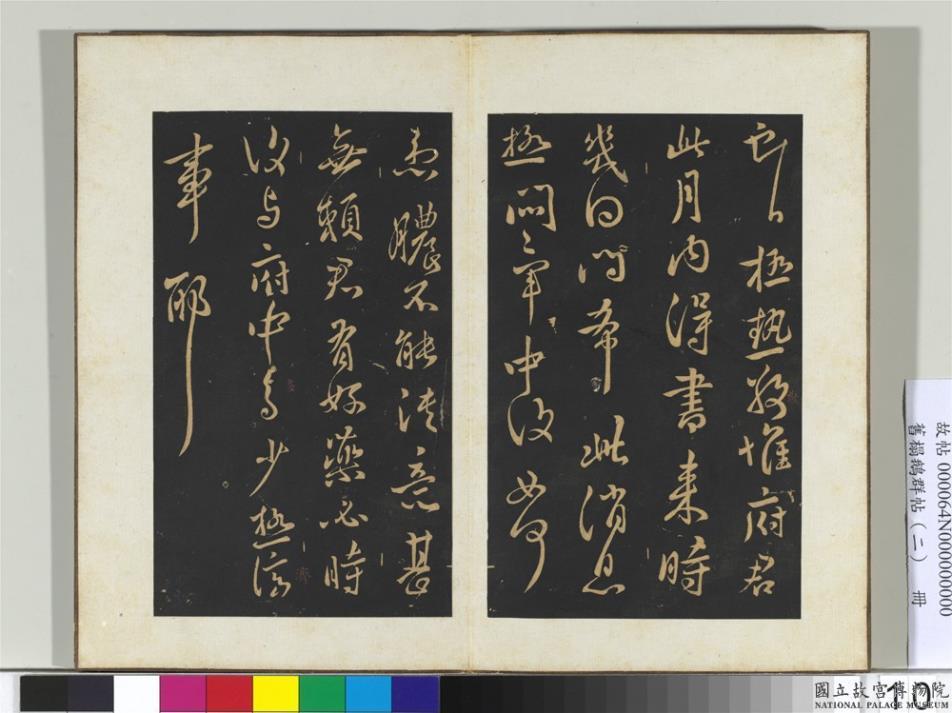 極熱敬惟府君
此月內得書來時
幾日問希此消息
極悶悶軍中後如何
患膿不能潰意甚
無賴君有好藥必時
後与府中多少極濟
事耶
故帖 000064N000000000
舊榻鵝群帖（二） 冊
國立故宮博物院
NATIONAL PALACE MUSEUM
10